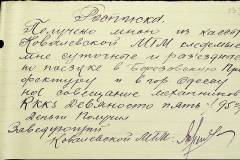 Расписка.
Получено мною из кассы
Ковалевской МТМ следуемые
мне суточные и разъездные
по поездке в Березовскую Пре
фектуру и в гор Одессу
на совещание механиков
RKKS Девяносто пять (95)
Деньги получил
Заведующий
Ковалевской МТМ: